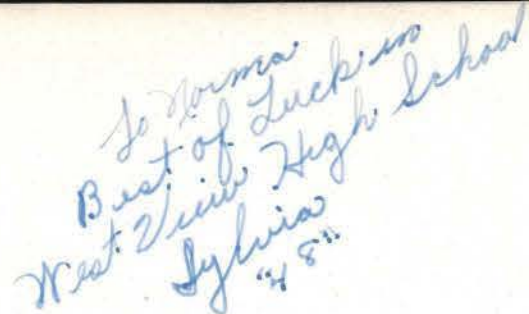 To Norma
Best of Luck in
West View High School
Sylvia
"48"